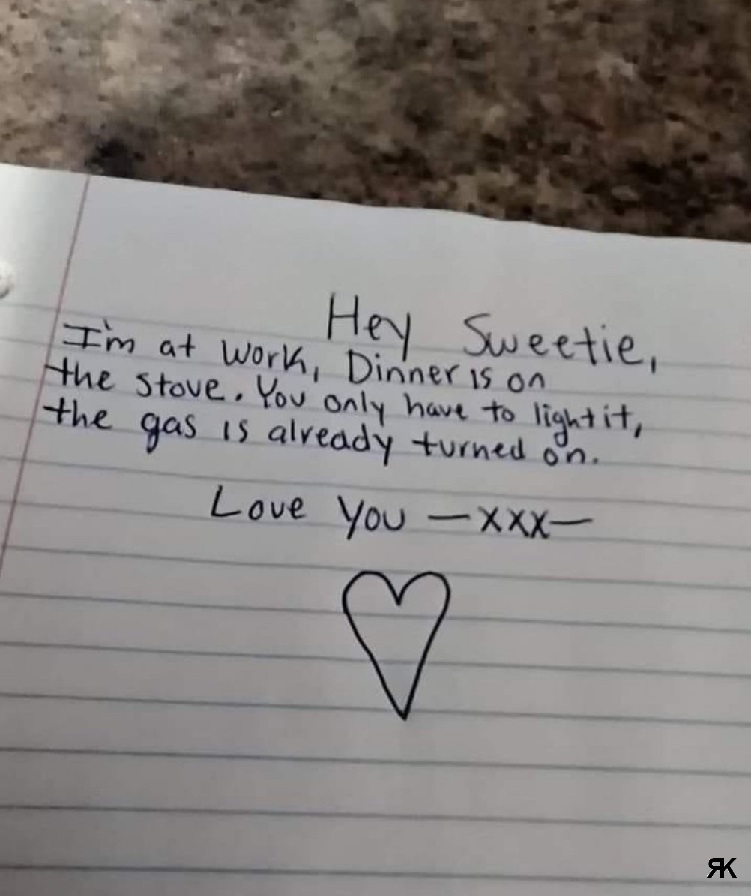 Hey Sweetie,
I'm at work, Dinner is on
the stove. You only have to light it,
the gas is already turned on.
Love You —xxx—
ЯK